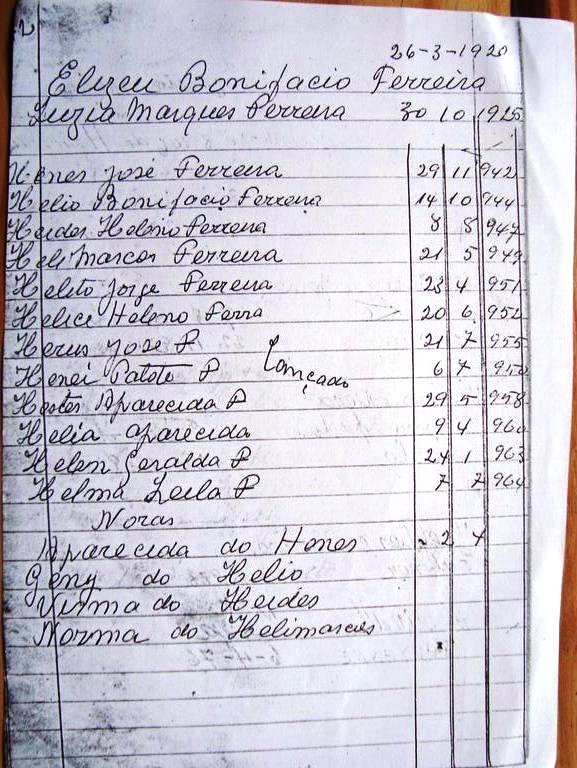 26-3-1920
Elizeu Bonifacio Ferreira
Luzia Marques Ferreira 30 10 1925
Henes José Ferreira 29 11 942
Helio Bonifacio Ferreira 14 10 944
Heides Heleno Ferreira 8 8 947
Heli Marcos Ferreira 21 5 949
Helito Jorge Ferreira 23 4 951
Helice Heleno Ferra 20 6 952
Herus José F 21 7 955
Henei F 6 7
Lançado
Hestes Aparecida F 29 5 958
Helia Aparecida 9 4 960
Helen Geralda F 24 1 963
Helma Leila F 7 7 964
Noras
Aparecida do Henes 2 4
Geny do Helio
Virma do Heides
Norma do Helimarcos